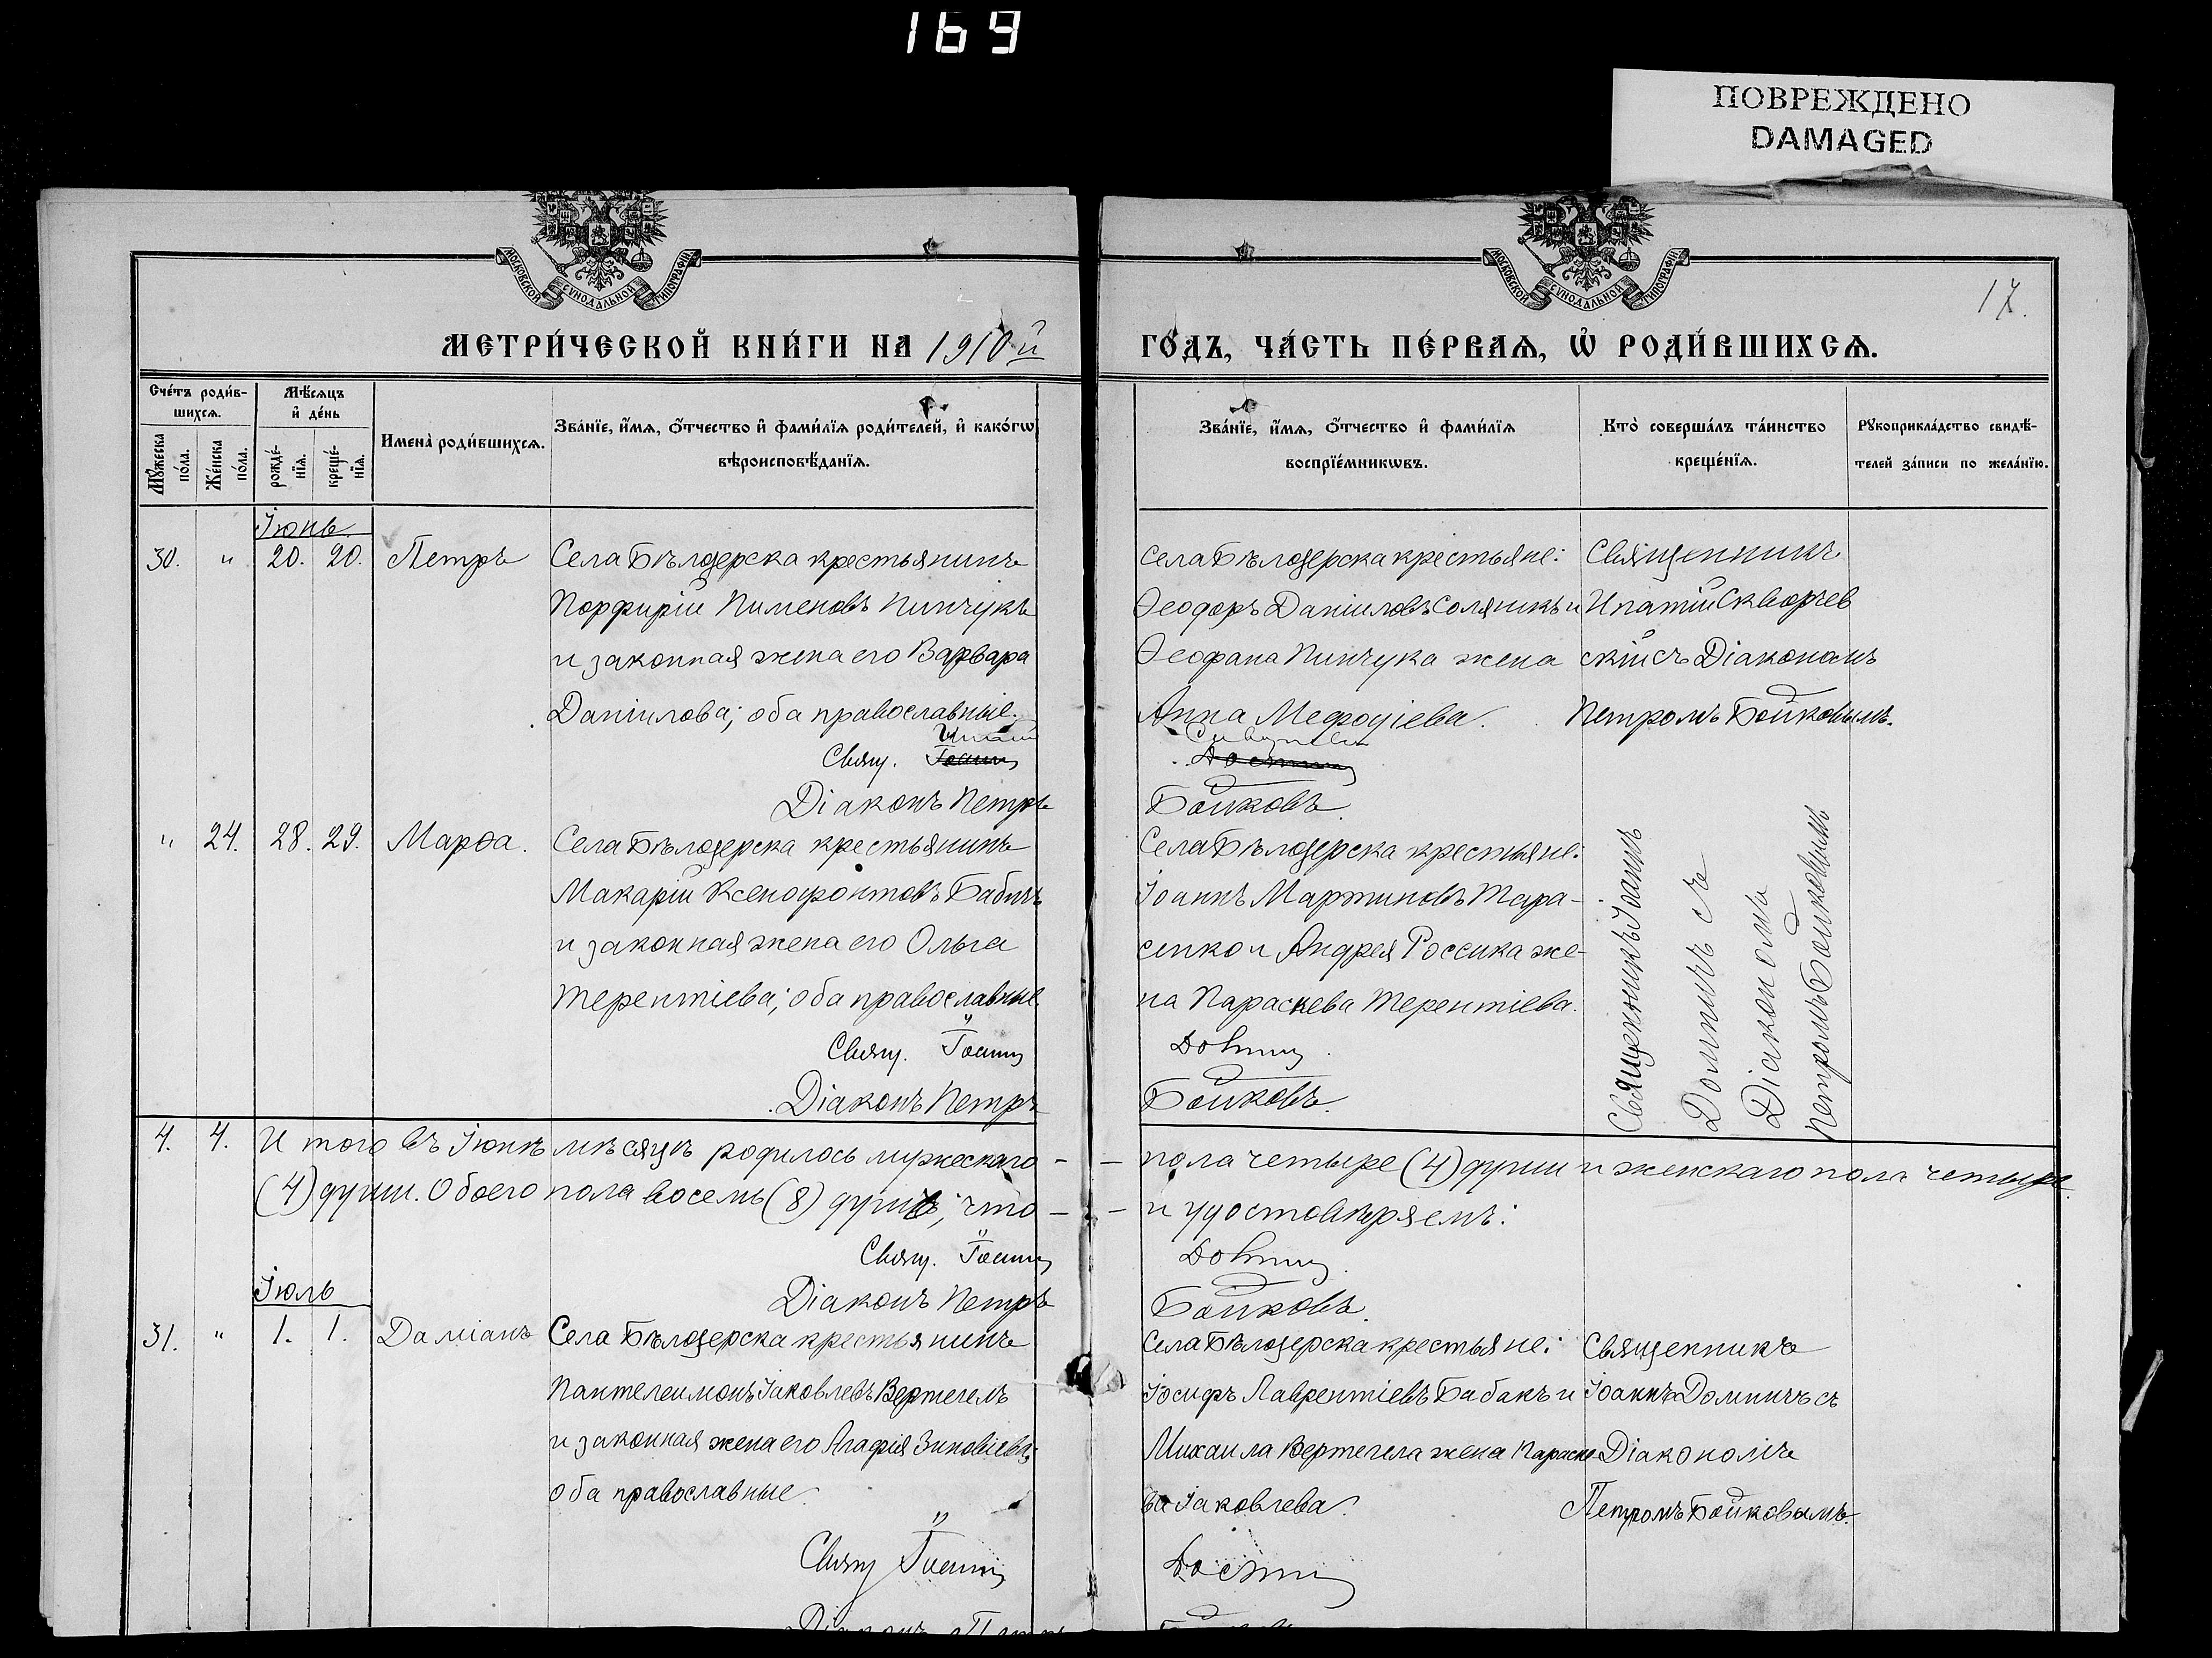 169
ПОВРЕЖДЕНО
DAMAGED
МОСКОВСКОЙ СѴНОДАЛЬНОЙ ТИПОГРАФІИ
МОСКОВСКОЙ СѴНОДАЛЬНОЙ ТИПОГРАФІИ
17.
МЕТРИ́ЧЕСКОЙ КНИ́ГИ НА 1910й
ГО́ДЪ, ЧА́СТЬ ПЕ́РВАѦ, Ѡ҆ РОДИ́ВШИХСѦ.
Сче́тъ роди́в-
шихсѧ.
Мꙋ́жеска
по́ла.
Же́нска
по́ла.
Мѣ́сѧцъ
и҆ де́нь
рожде́-
нїѧ.
креще́-
нїѧ.
Имена̀ роди́вшихсѧ.
Зва́нїе, и҆́мѧ, ѻ҆́тчество и҆ фами́лїѧ роди́телей, и҆ како́гѡ
вѣроисповѣ́данїѧ.
Зва́нїе, и҆́мѧ, ѻ҆́тчество и҆ фами́лїѧ
воспрїе́мникѡвъ.
Кто̀ соверша́лъ та́инство
креще́нїѧ.
Рꙋкоприкла́дство свидѣ́-
телей за́писи по жела́нїю.
Іюнь.
30. " 20. 20. Петръ
Села Бѣлозерска крестьянинъ
Порфирій Пименовъ Пинчукъ
и законная жена его Варвара
Даніилова; оба православные.
Ипатій
Свящ. Іоаннъ
Діаконъ Петръ
Села Бѣлозерска крестьяне:
Ѳеодоръ Даніиловъ Соляникъ и
Ѳеофана Пинчука жена
Анна Меѳодіева.
Бойковъ.
Священникъ
Ипатій Скворчев
скій съ Діакономъ
Петромъ Бойковымъ.
" 24. 28. 29. Марѳа.
Села Бѣлозерска крестьянинъ
Макарій Ксенофонтовъ Бабичъ
и законная жена его Ольга
Терентіева; оба православные
Свящ. Іоаннъ
Діаконъ Петръ
Села Бѣлозерска крестьяне:
Іоаннъ Мартиновъ Тара-
сенко и Андрея Россика же-
на Параскева Терентіева.
Бойковъ.
Священникъ Іоаннъ
Доминичъ съ
Діакономъ
Петромъ Бойковымъ
4. 4. И того въ Іюнѣ мѣсяцѣ родилось мужескаго -
- пола четыре (4) души и женскаго пола четыре
(4) души. Обоего пола восемь (8) душъ; что -
- и удостовѣряемъ:
Свящ. Іоаннъ
Діаконъ Петръ
Бойковъ.
Іюль
31. " 1. 1. Даміанъ
Села Бѣлозерска крестьянинъ
Пантелеимонъ Іаковлевъ Вертегелъ
и законная жена его Агафія Зиновіева;
оба православные.
Свящ Іоаннъ
Діаконъ Петръ
Села Бѣлозерска крестьяне:
Іосифъ Лаврентіевъ Бабакъ и
Михаила Вертегела жена Параске-
ва Іаковлева.
Священникъ
Іоаннъ Доминичъ съ
Діакономъ
Петромъ Бойковымъ.